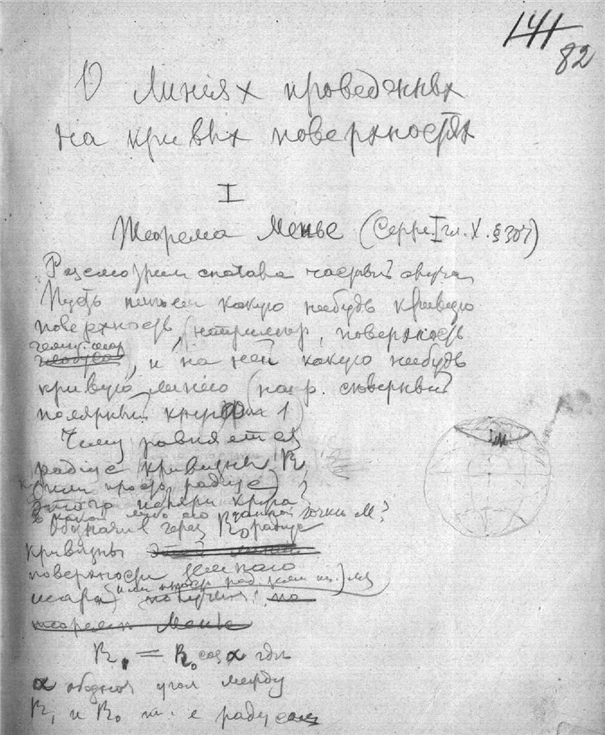 141
82
О линіях проведенных
на кривых поверхностях
I
Теорема Менье (Серре I гл. X. §307)
Разсмотрим сначала частный случа
Пусть имеем какую нибудь кривую
поверхность, (например, поверхность
и на ней какую нибудь
кривую линію (напр. северный
полярный круг 1
Чему равняется
радіус кривизны R
(или просто радіус)
этого поляри круга?
в какой либо его точки M?
Обозначив через R₀ радіус
кривизны
поверхности земного
шара получим: по
теореме Менье
R₁ = R₀ cos α где
α угол между
R₁ и R₀ т. е